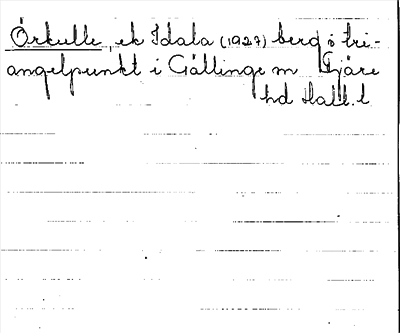 Örkulle, ek Idala (1927) berg o tri-
angelpunkt i Gällinge m Fjäre
hd Hall. l